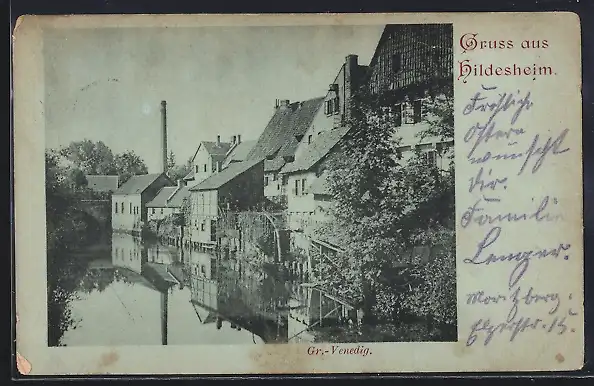 Gruss aus
Hildesheim.
Fröhlich
Ostern
wünscht
Dir.
Familie
Lenger.
Moritzberg.
Elzerstr. 15.
Gr.-Venedig.